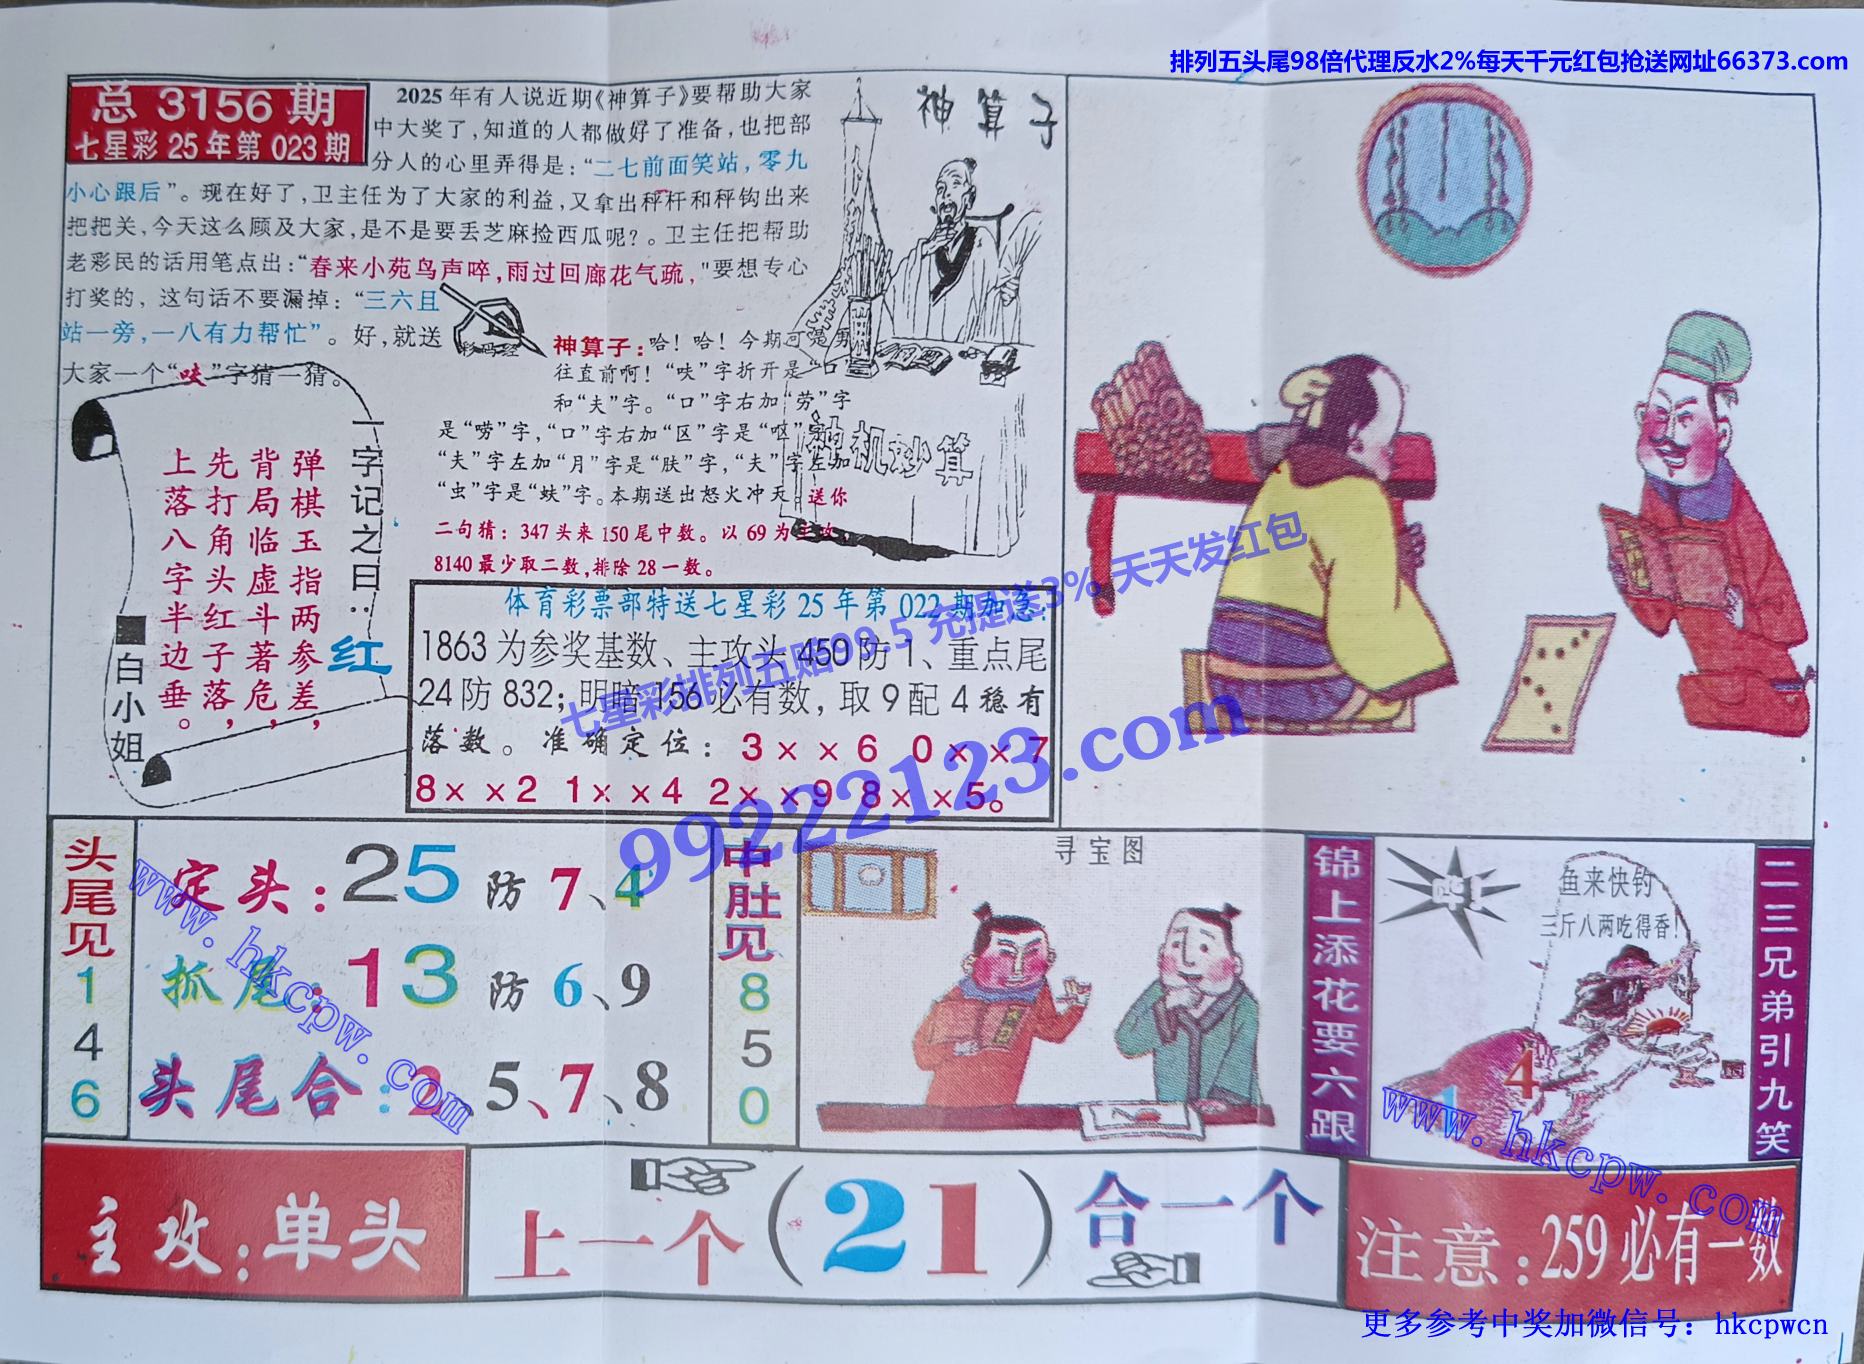 排列五头尾98倍代理反水2%每天千元红包抢送网址66373.com
总 3156 期
七星彩 25 年第 023 期
2025 年有人说近期《神算子》要帮助大家
中大奖了，知道的人都做好了准备，也把部
分人的心里弄得是：“二七前面笑站，零九
小心跟后”。现在好了，卫主任为了大家的利益，又拿出秤杆和秤钩出来
把把关，今天这么顾及大家，是不是要丢芝麻捡西瓜呢？。卫主任把帮助
老彩民的话用笔点出：“春来小苑鸟声啐，雨过回廊花气疏，"要想专心
打奖的，这句话不要漏掉：“三六且
站一旁，一八有力帮忙”。好，就送
大家一个“呋”字猜一猜。
彩码经
神算子
神算子：哈！哈！今期可是勇
往直前啊！“呋”字折开是“口”
和“夫”字。“口”字右加“劳”字
是“唠”字，“口”字右加“区”字是“呕”字
“夫”字左加“月”字是“肤”字，“夫”字左加
“虫”字是“蚨”字。本期送出怒火冲天。送你
二句猜：347 头来 150 尾中数。以 69 为
8140 最少取二数，排除 28 一数。
神机妙算
一字记之曰：
红
弹棋玉指两参差，
背局临虚斗著危，
先打角头红子落，
上落八字半边垂。
■白小姐
体育彩票部特送七星彩 25 年第 022 期加急：
1863 为参奖基数、主攻头 450 防 1、重点尾
24 防 832；明暗 156 必有数，取 9 配 4 稳有
落数。准确定位：3××6 0××7
8××2 1××4 2××9 8××5。
七星彩排列五贴99.5 充提送3% 天天发红包
99222123.com
头尾见
1
4
6
定头：25 防 7、4
抓尾：13 防 6、9
头尾合：2、5、7、8
www.hkcpw.com
中肚见
8
5
0
寻宝图
锦上添花要六跟
鱼来快钓
三斤八两吃得香！
1
4
www.hkcpw.com
二三兄弟引九笑
主攻：单头
上一个（21）合一个
注意：259 必有一数
更多参考中奖加微信号：hkcpwcn